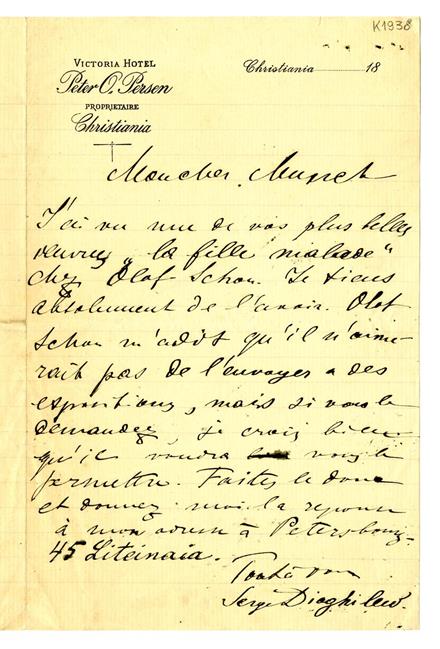 K1938
VICTORIA HOTEL
Peter O. Persen
PROPRIETAIRE
Christiania
Christiania 18
Mon cher
J'ai vu une de vos plus belles
œuvres „la fille malade"
chez Olaf Schou. Je tiens
absolument de l'avoir. Olaf
Schou m'a dit qu'il n'aime-
rait pas de l'envoyer a des
expositions, mais si vous le
demandez, je crois bien
qu'il voudra vous le
permettre. Faites le donc
et donnez moi la reponse
à mon adresse à Petersbourg.
45 Liteinaia.
Tout à vous
Serge Diaghilew.